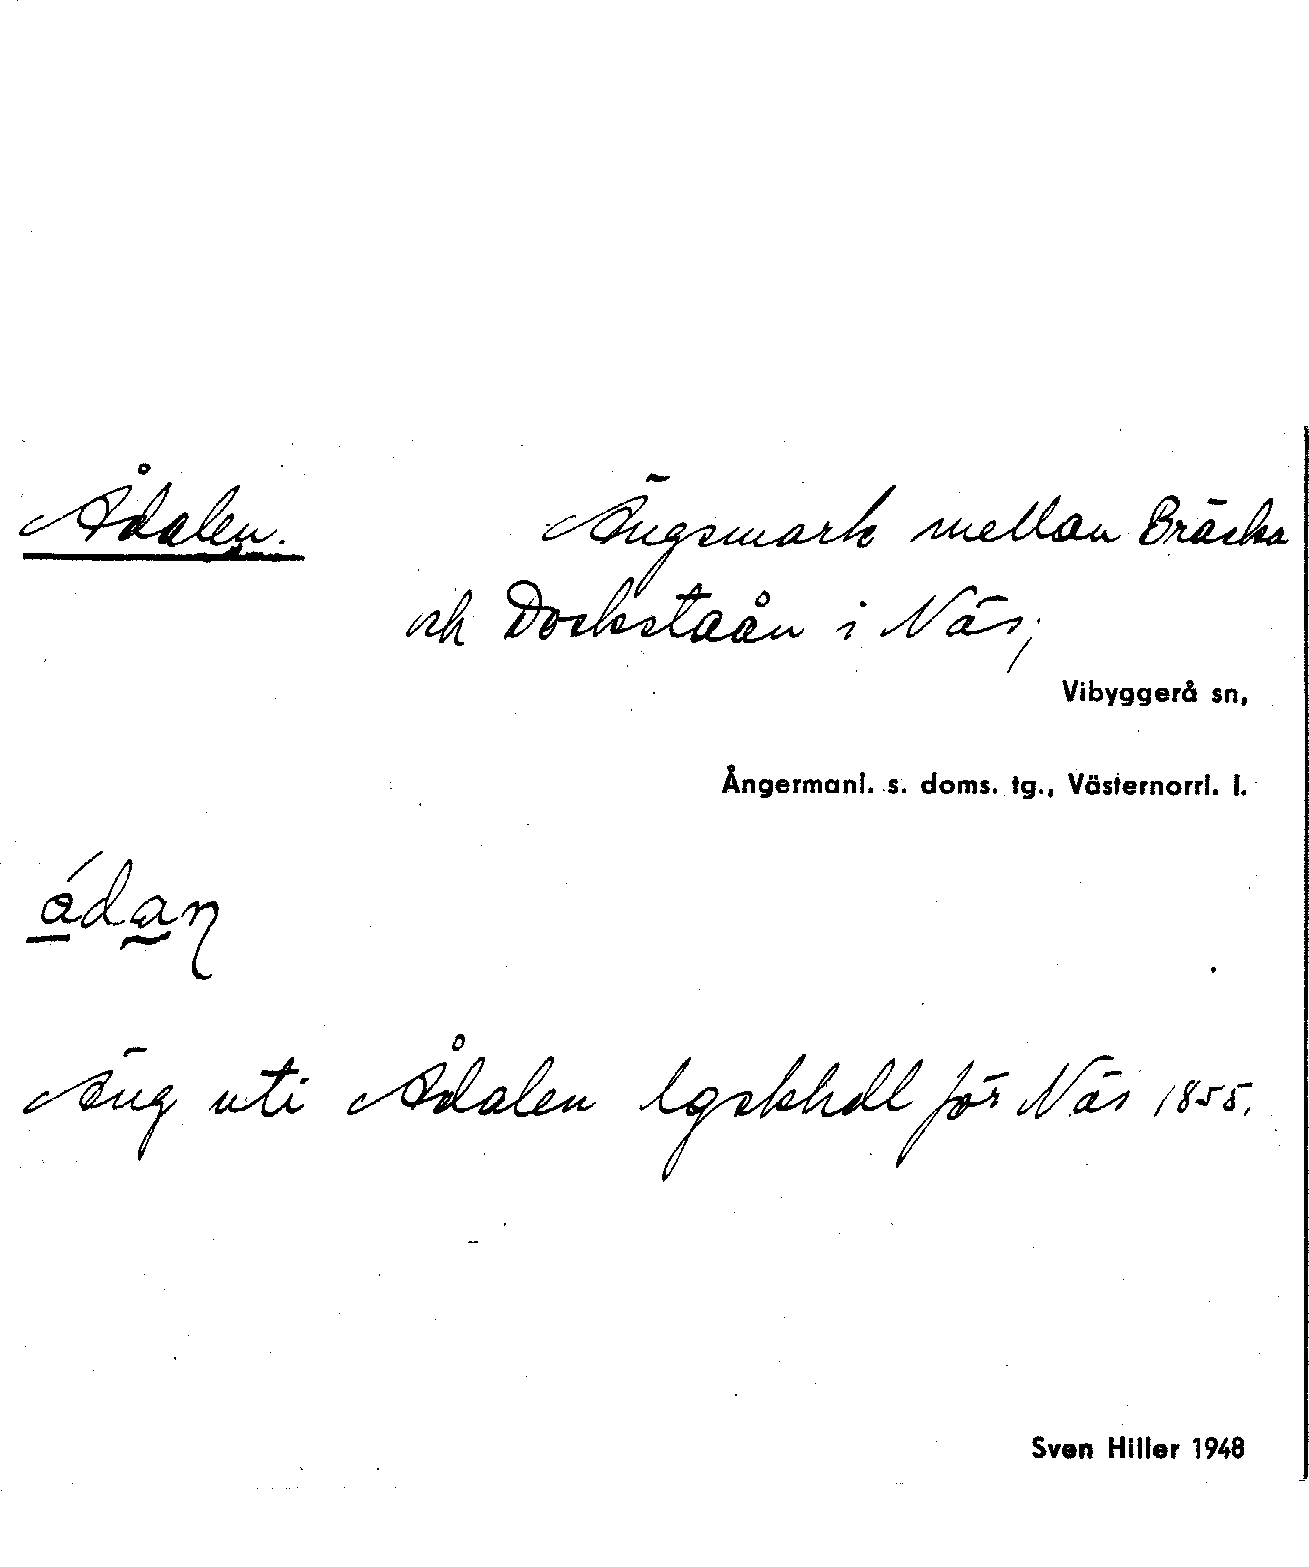 Ådalen. Ängsmark mellan Bräcka
och Dockstaån i Näs,
Vibyggerå sn,
Ångermanl. s. doms. tg., Västernorrl. l.
Äng uti Ådalen lgskhdl för Näs 1855.
Sven Hiller 1948